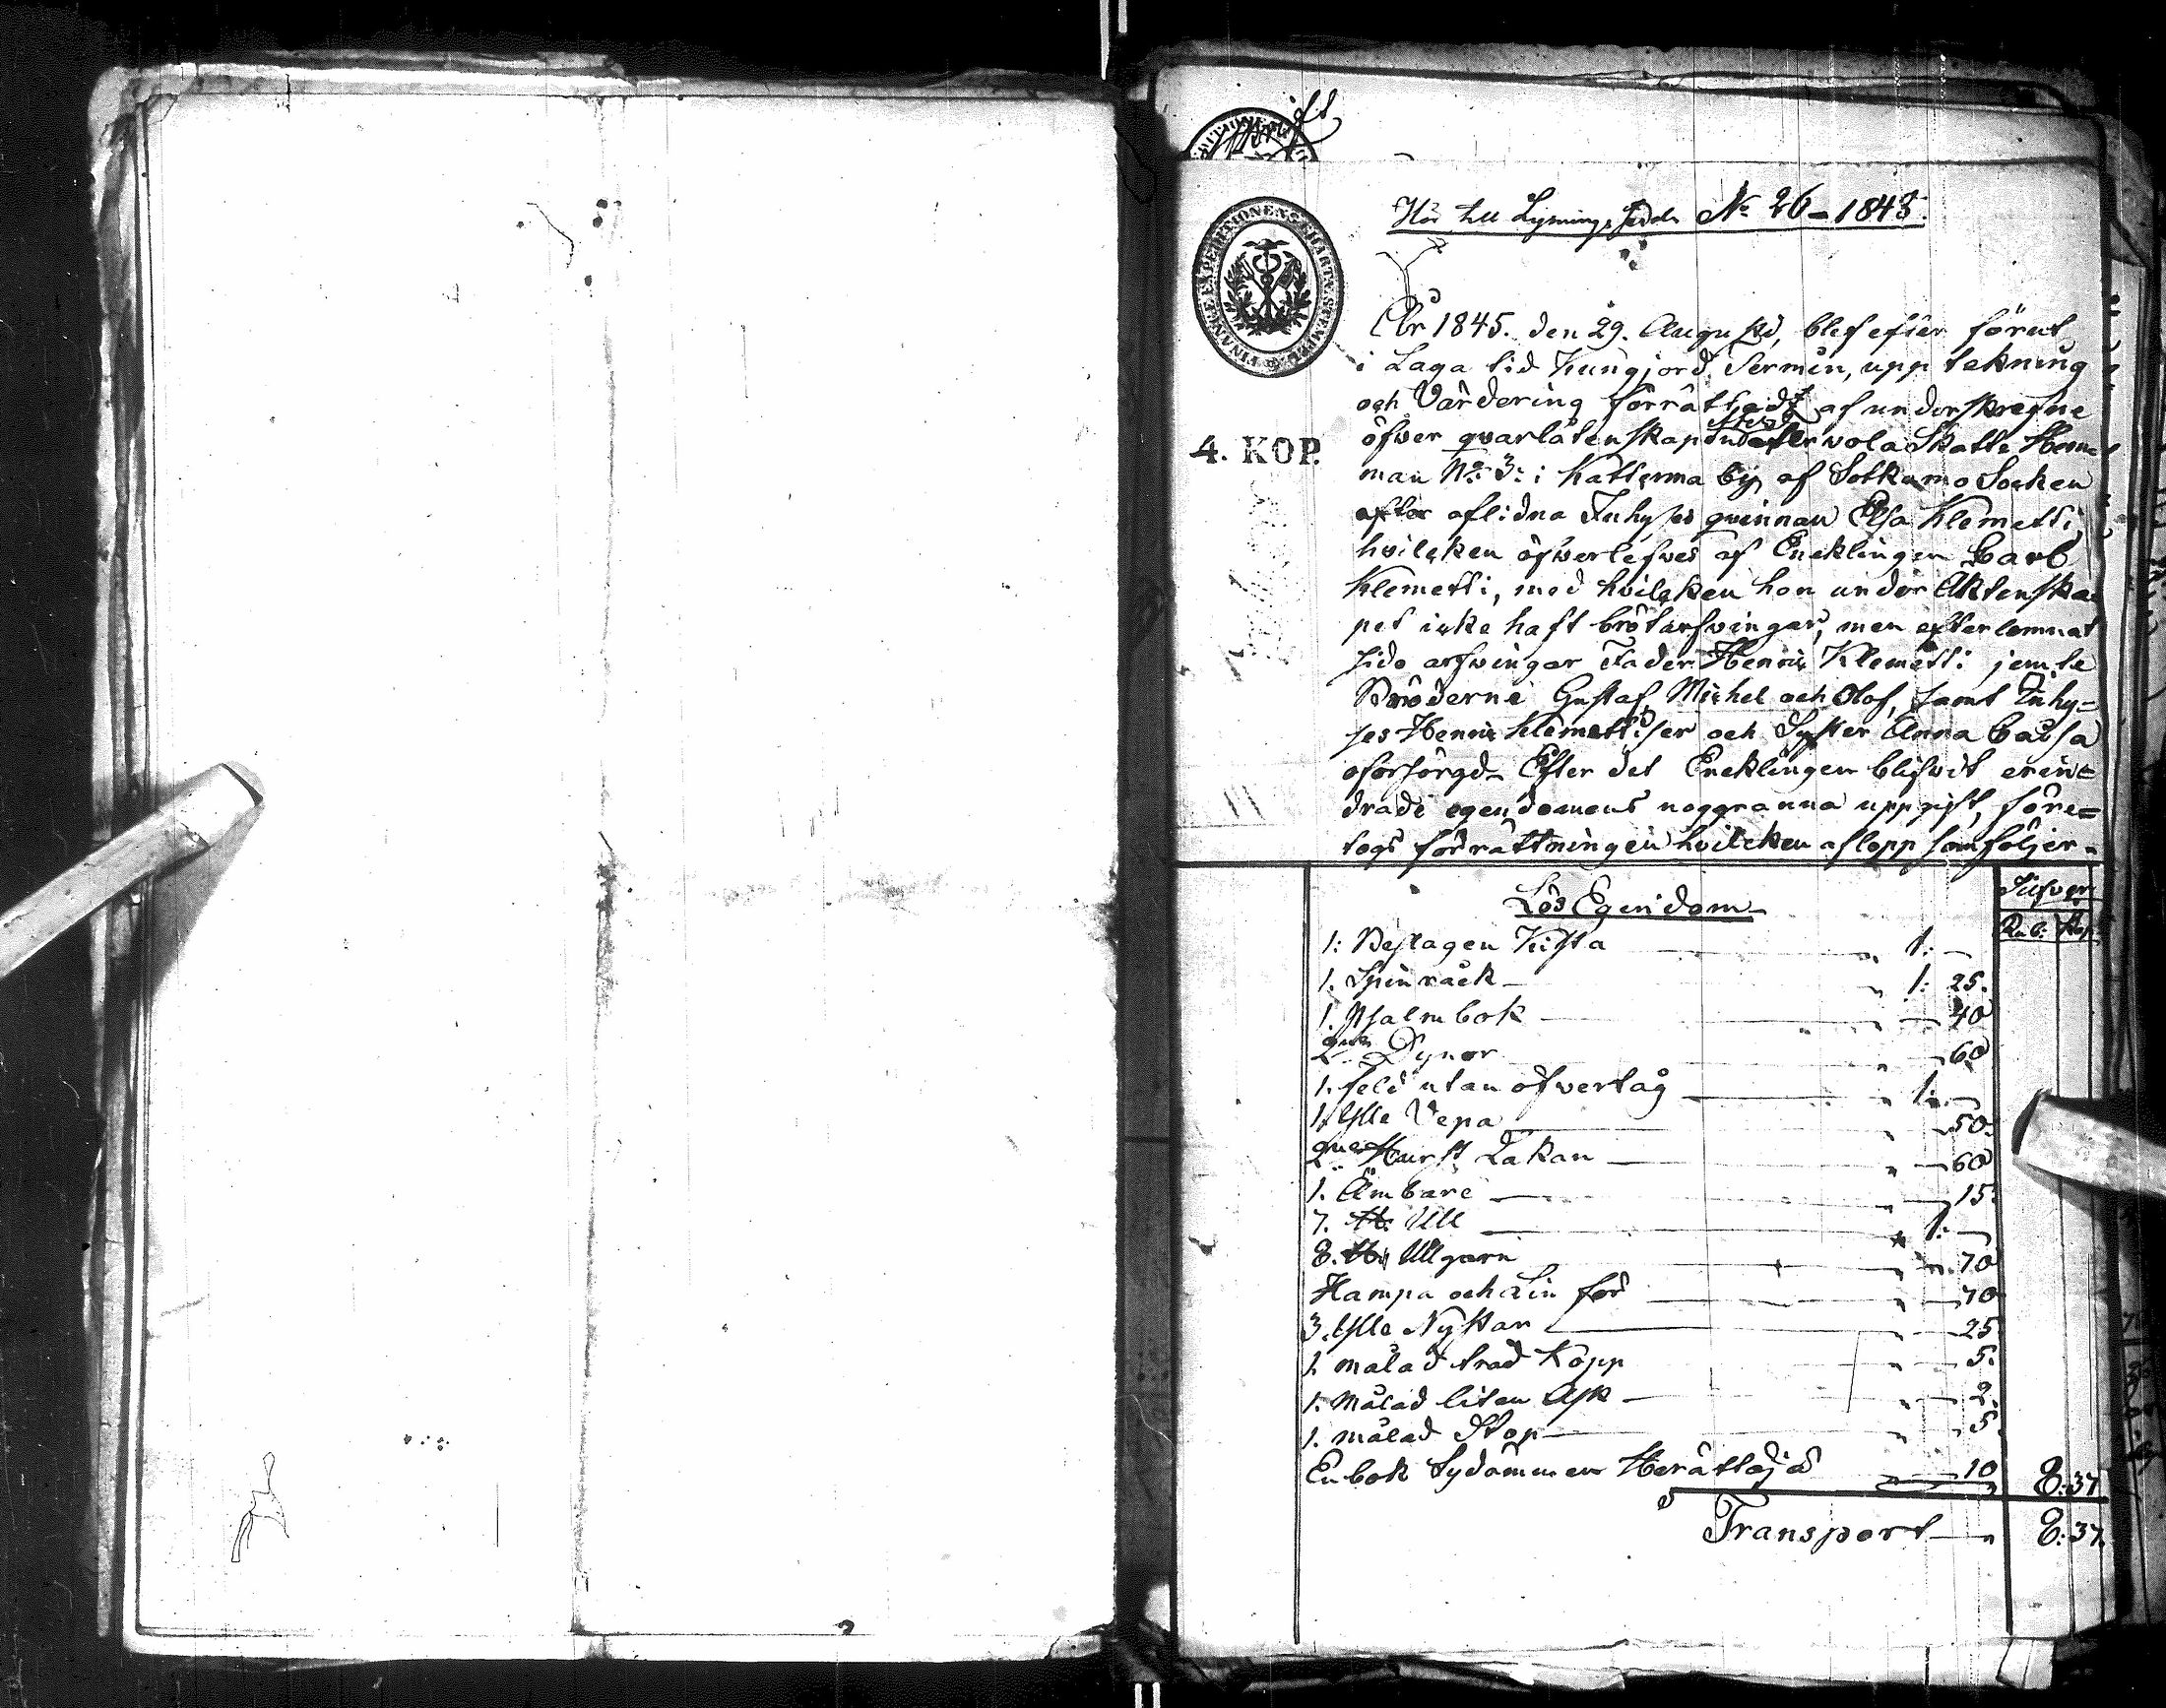 Hör till Lysning, sedeln No 26 – 1848.
FINANCE EXPEDITIONENS CHARTÆ STEMPEL
4. KOP.
År 1845. den 29. Augusti, blef efter förut
i Laga tid Kungjord Termin, upp tekning
och Värdering förrättad af underskrefne
öfver qvarlåtenskapen vola Skatte Hem-
man No 3: i Katterma by af Sotkamo Socken
efter aflidna Inhyses qvinnan Elsa Klemetti,
hvilcken öfwerlefves af Encklingen Carl
Klemetti, med hvilcken hon under Äktenska-
pet icke haft bröstarfvingar, men efterlemnat
sido arfwingar Fader Henric Klemetti jemte
Bröderne Gustaf, Michel och Olof, samt Inhy-
ses Henric Klemettiser och Syster Anna Caisa
oförsörgd. Efter det Encklingen blifvit erin-
drade egendomens noggranna uppgift, före-
togs förrättningen hvilcken aflopp som följer.
Silfver
Lös Egendom
Rub: Kop:
1: Beslagen Kista 1: —
1. Spinråck 1: 25.
1. Psalmbok 40
2ne Dynor 60
1. feld utan öfvertåg 1: —
1. Ylle Vepa 50.
2ne Hurst Lakan 60
1. Ämbare 15.
7. ℔. Ull 1: —
8. ℔. Ullgarn 70
Hampa och Lin för 70
3. Ylle Nystar 25
1. målad träd Kopp 5.
1. målad liten Ask 2.
1. målad Stop 5.
En bok Sydämmen Herätläjä 10 8:37
Transport 8:37.